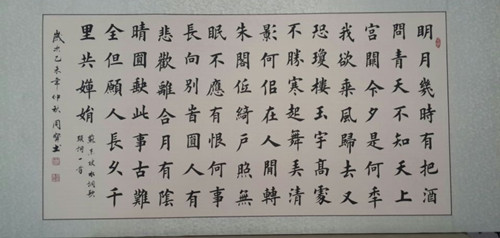 明月幾時有把酒
問青天不知天上
宮闕今夕是何秊
我欲乘風歸去又
恐瓊樓玉宇高處
不勝寒起舞弄清
影何佀在人間轉
朱閣低綺戶照無
眠不應有恨何事
長向別旹圓人有
悲歡離合月有陰
晴圓缺此事古難
全但願人長久千
里共嬋娟
蘇東坡水調歌
頭詞一首
歲次乙未年仲秋周書